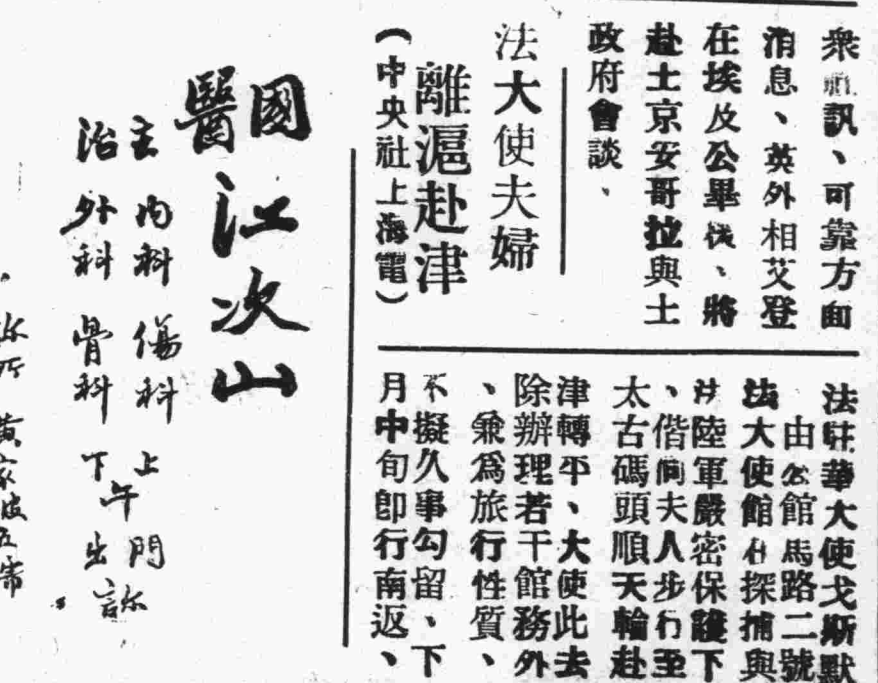 衆社訊、可靠方面
消息、英外相艾登
在埃及公畢後、將
赴土京安哥拉與土
政府會談、
法大使夫婦
離滬赴津
（中央社上海電）
法駐華大使戈斯默
由公館馬路二號
法大使館 探捕與
陸軍嚴密保護下
、偕同夫人步行至
太古碼頭順天輪赴
津轉平、大使此去
除辦理若干館務外
、兼爲旅行性質、
不擬久事勾留、下
月中旬卽行南返、
國醫江次山
主治
內科 傷科
外科 骨科
上午門診
下午出診